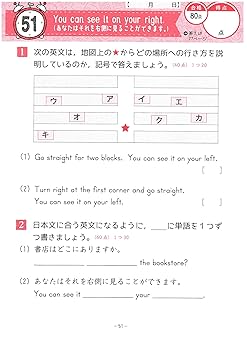 51
You can see it on your right.
(あなたはそれを右側に見ることができます。)
月 日
合格
80点
得点
点
答えは
77ページ
1 次の英文は，地図上の★からどの場所への行き方を説
明しているのか，記号で答えましょう。(60点) 1つ30
ウ ア イ エ
オ カ ク
キ ★
(1) Go straight for two blocks. You can see it on your left.
[ ]
(2) Turn right at the first corner and go straight.
You can see it on your left.
[ ]
2 日本文に合う英文になるように，＿に単語を１つず
つ書きましょう。
(1) 書店はどこにありますか。
the bookstore?
(2) あなたはそれを右側に見ることができます。
You can see it your .
-51-